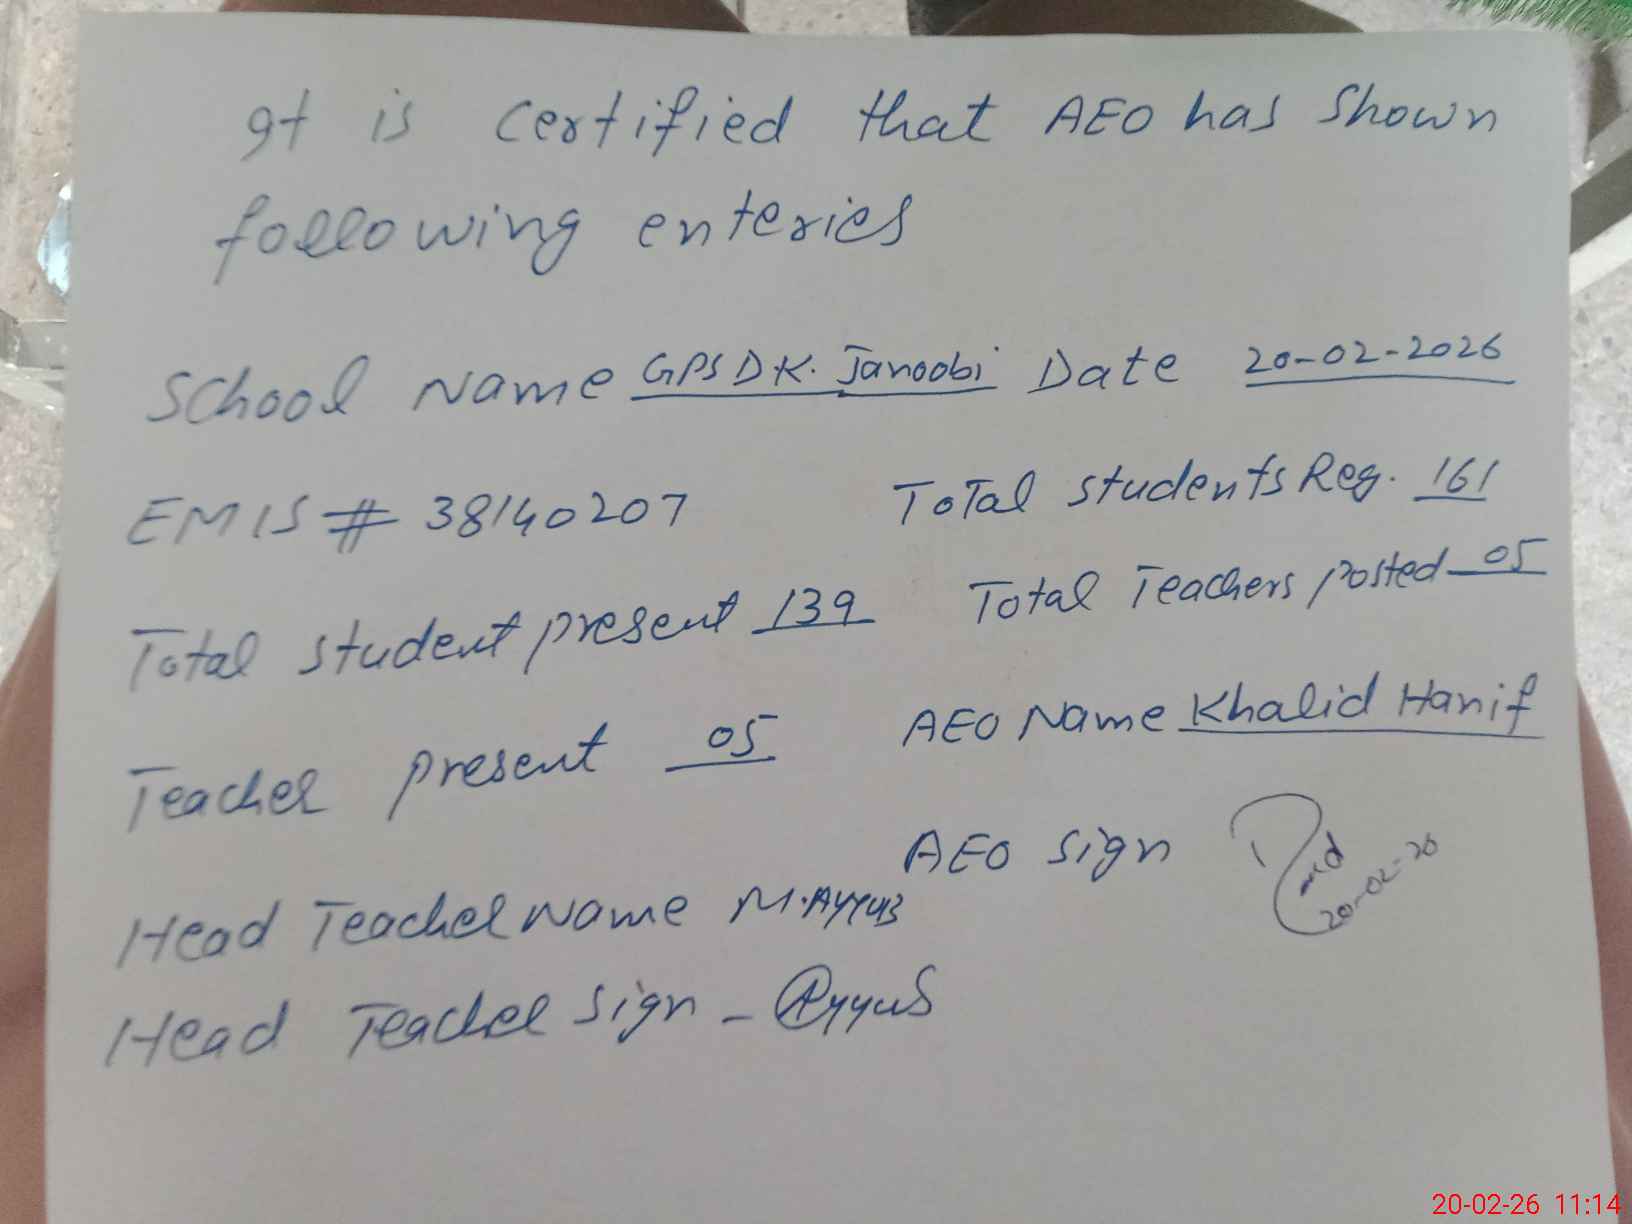 It is certified that AEO has shown
following enteries
School Name GPS DK. Janoobi Date 20-02-2026
EMIS # 38140207 Total students Reg. 161
Total student present 139 Total Teachers posted 05
Teacher present 05 AEO Name Khalid Hanif
AEO sign
20-02-26
Head Teacher Name M.Ayyub
Head Teacher sign - Ayyub
20-02-26 11:14